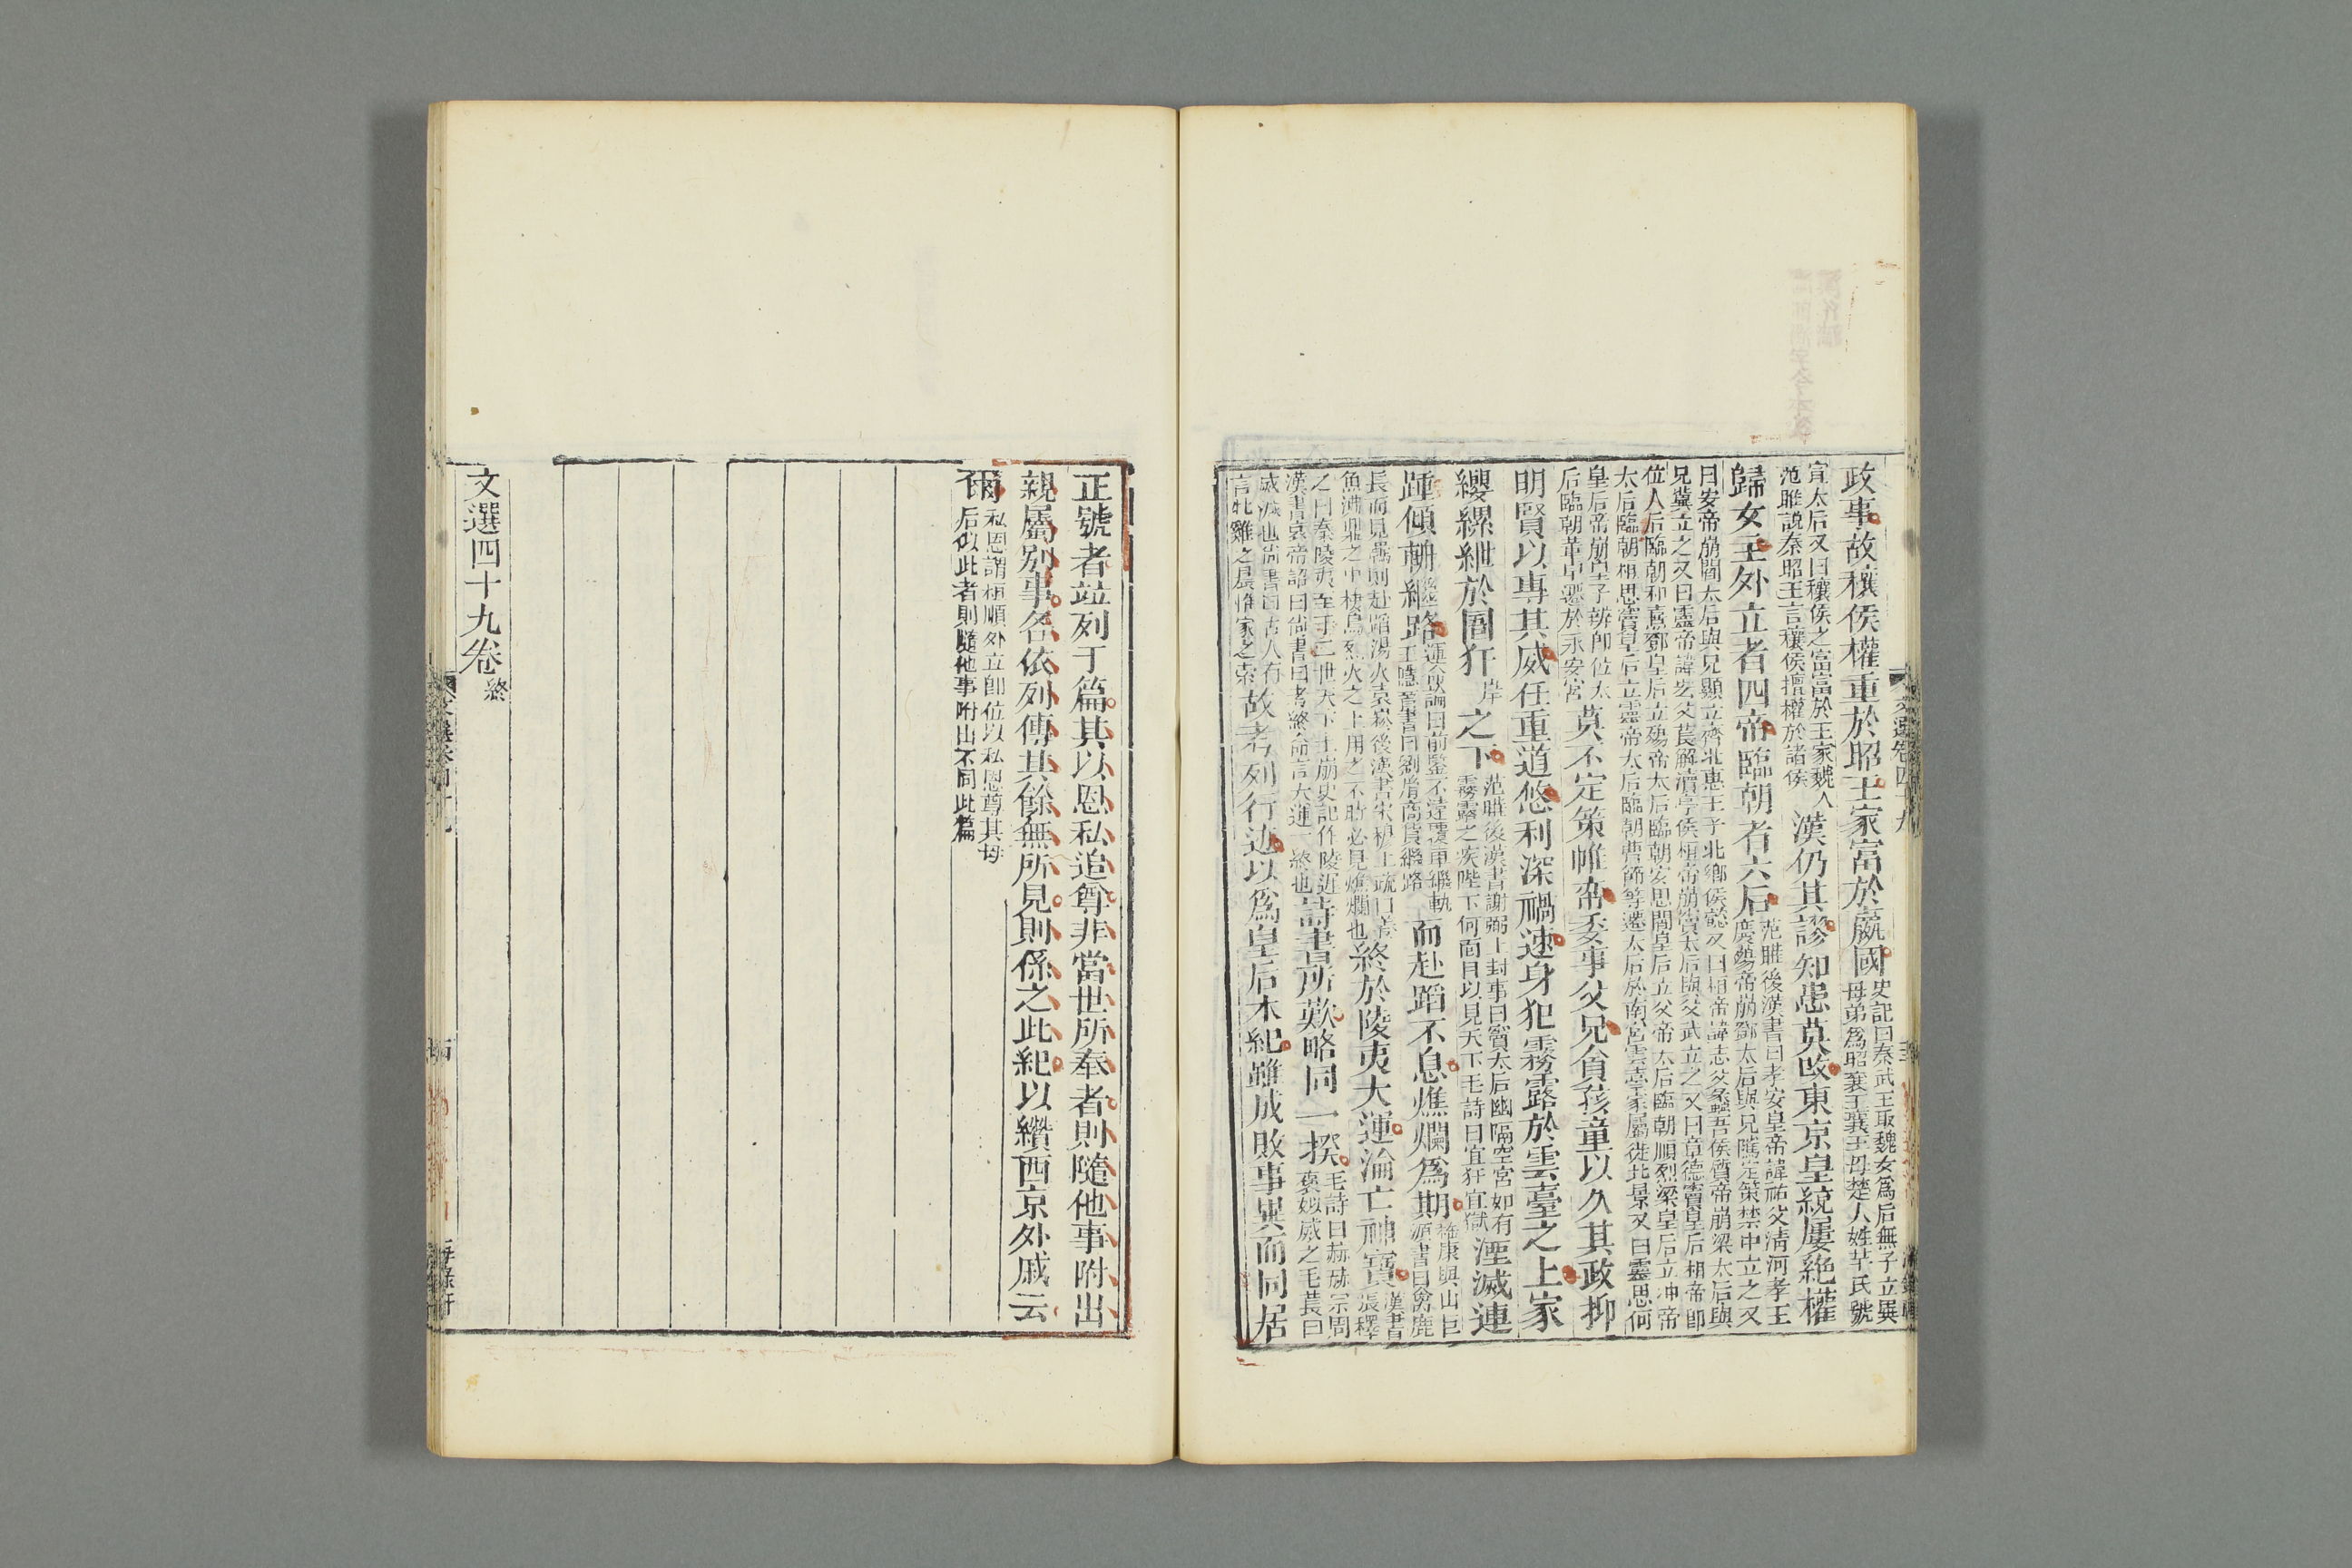 政事故穰侯權重於昭王家富於嬴國史記曰秦武王取魏女爲后無子立異母弟爲昭襄王襄王母楚人姓芈氏號
宣太后又曰穰侯之富富於王家魏人范雎說秦昭王言穰侯擅權於諸侯漢仍其謬知患莫改東京皇統屢絶權
歸女主外立者四帝臨朝者六后范曄後漢書曰孝安皇帝諱祐父清河孝王慶殤帝崩鄧太后與兄騭定策禁中立之又
曰安帝崩閻太后與兄顯立濟北惠王子北鄉侯懿又曰桓帝諱志父蠡吾侯質帝崩梁太后與兄冀立之又曰靈帝諱宏父萇解瀆亭侯桓帝崩竇太后與父武立之又曰章德竇皇后和帝即
位太后臨朝和熹鄧皇后立殤帝太后臨朝安思閻皇后立少帝太后臨朝順烈梁皇后立冲帝太后臨朝桓思竇皇后立靈帝太后臨朝曹節等遷太后於南宮雲臺家屬徙北景又曰靈思何
皇后帝崩皇子辨即位太后臨朝董卓遷於永安宮莫不定策帷帟委事父兄貪孩童以久其政抑
明賢以專其威任重道悠利深禍速身犯霧露於雲臺之上家
纓縲紲於圄犴岸之下范曄後漢書謝弼上封事曰竇太后幽隔空宮如有霧露之疾陛下何面目以見天下毛詩曰宜犴宜獄湮滅連
踵傾輈繼路而赴蹈不息燋爛爲期
終於陵夷大運淪亡神寶漢書張釋
之曰秦陵夷至于二世天下土崩史記作陵遲漢書哀帝詔曰尚書曰考終命言大運一終也詩書所歎略同一揆毛詩曰赫赫宗周褒姒威之毛萇曰
威滅也尚書曰古人有言牝雞之晨惟家之索故考列行迹以爲皇后本紀雖成敗事異而同居
正號者竝列于篇其以恩私追尊非當世所奉者則隨他事附出
親屬别事各依列傳其餘無所見則係之此紀以纘西京外戚云
爾私恩謂桓順外立即位以私恩尊其母后似此者則隨他事附出不同此篇
文選四十九卷終